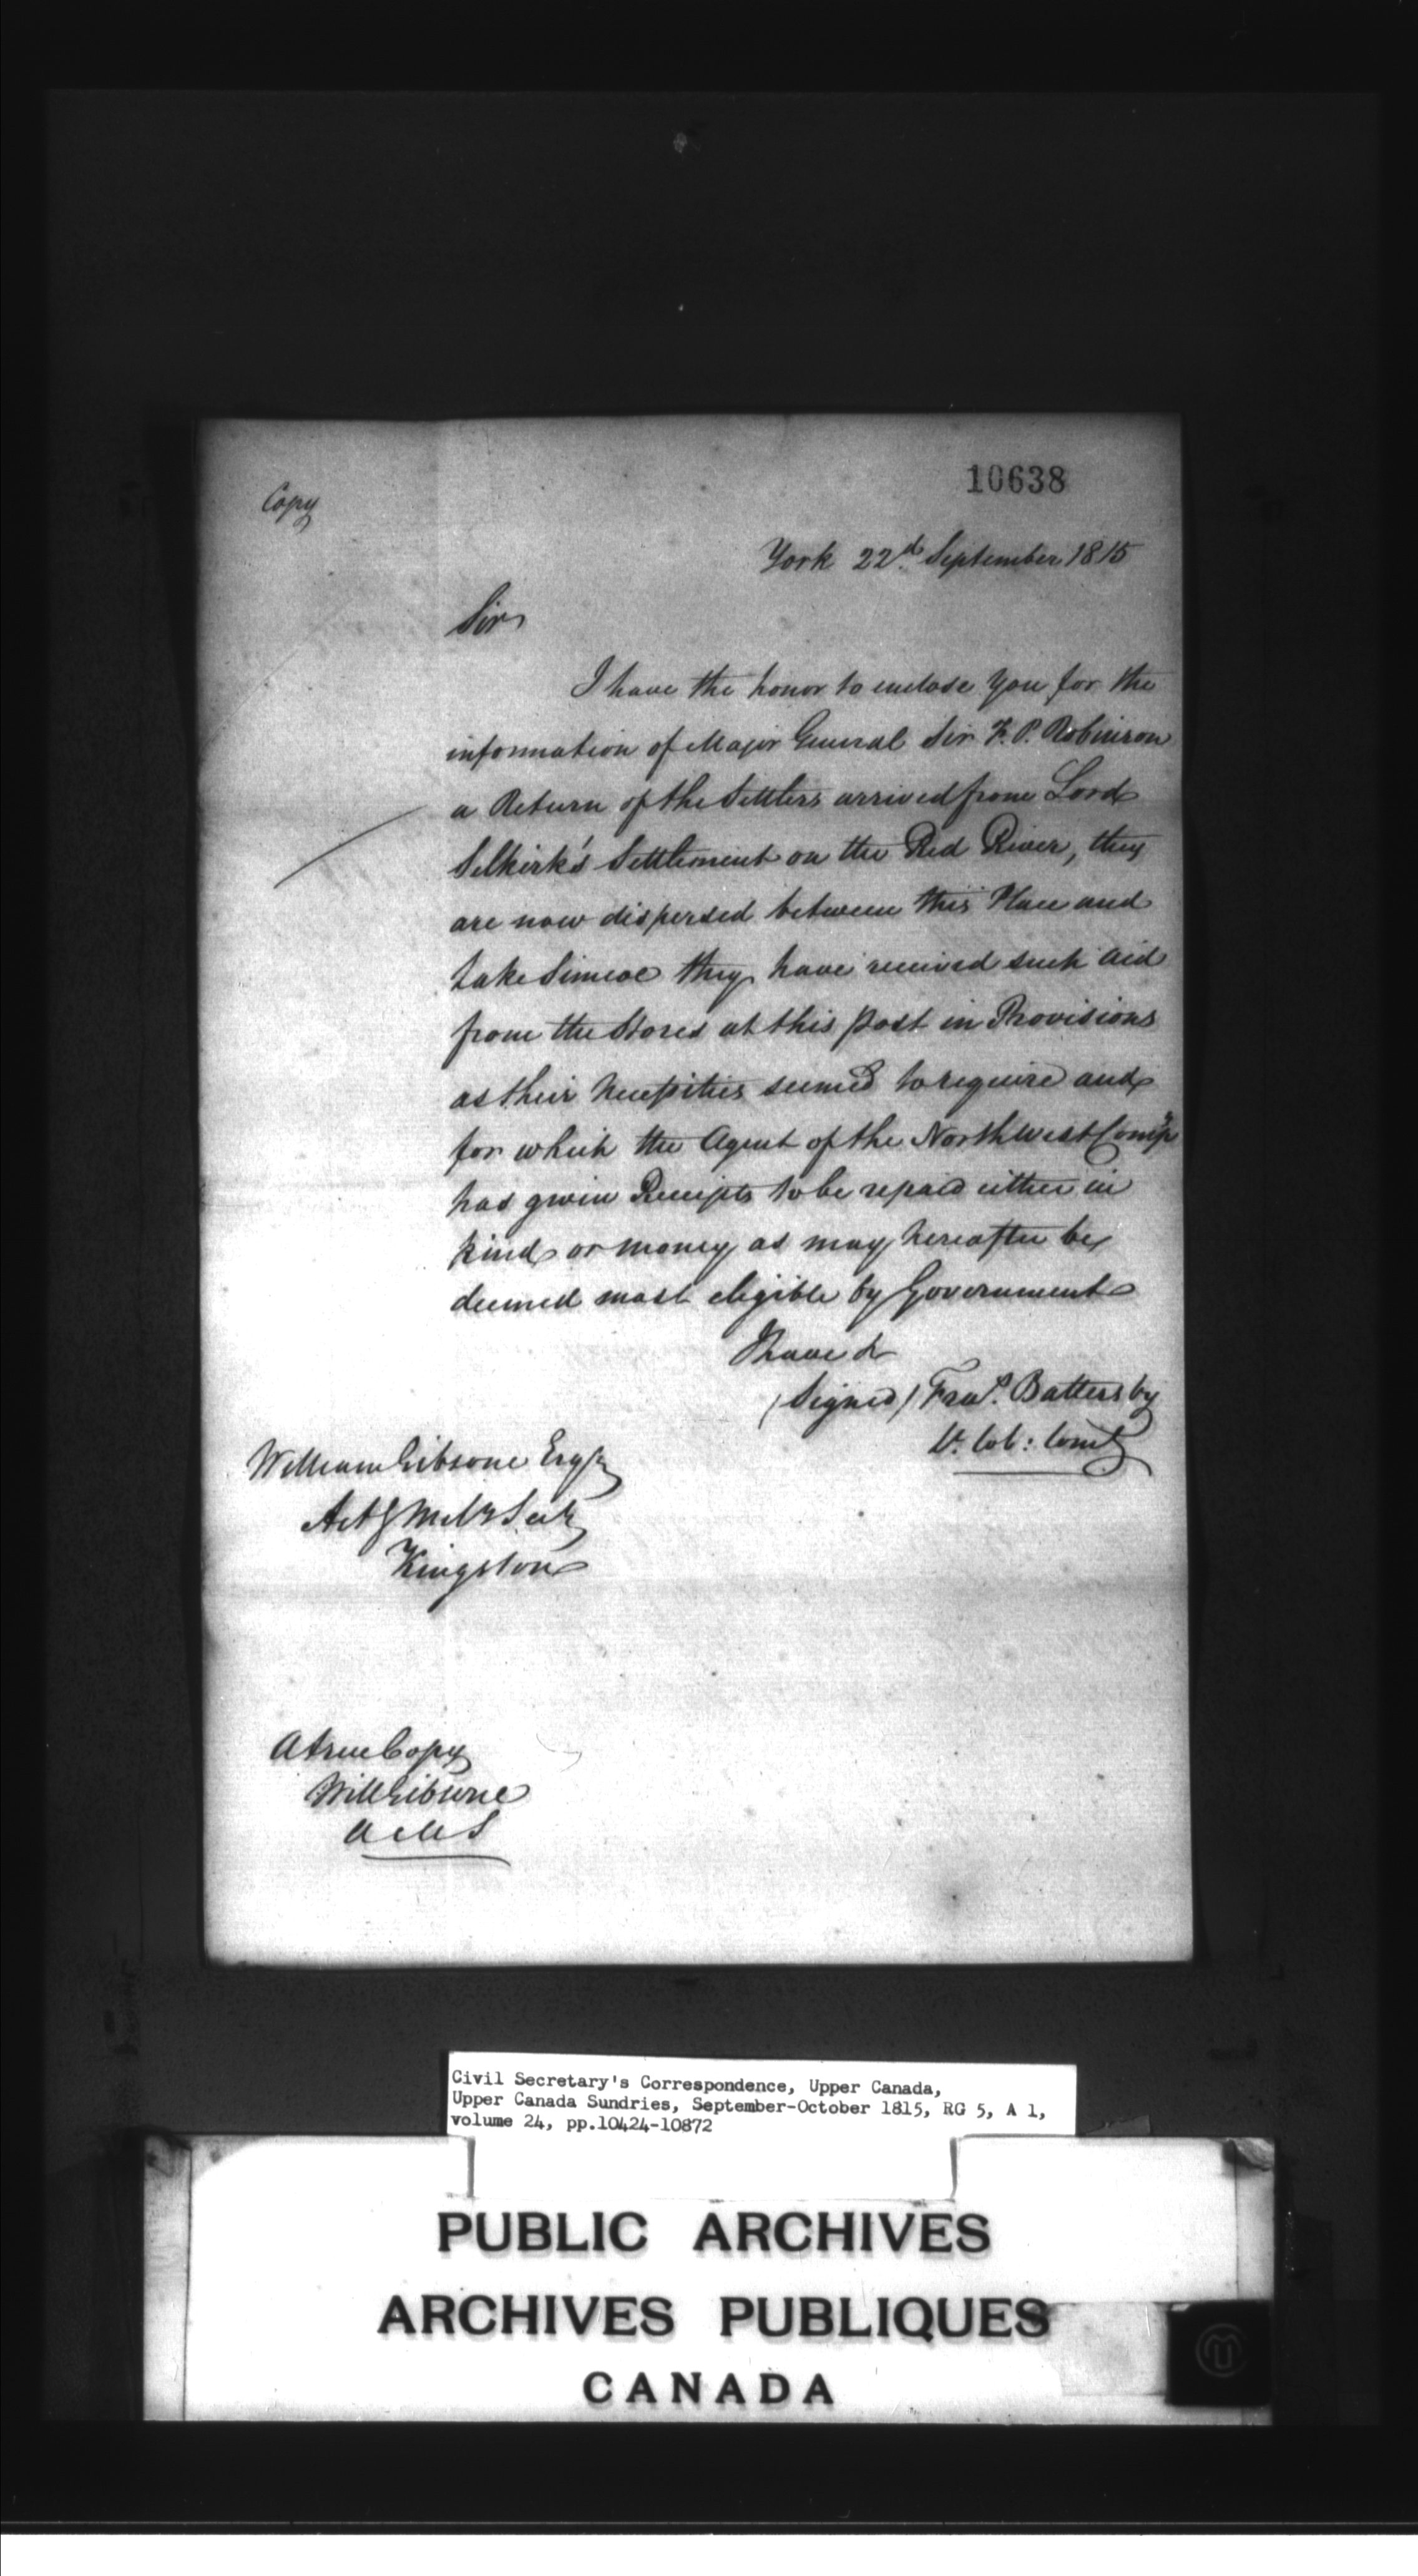 10638
Copy
York 22d. September 1815
Sir
I have the honor to enclose You for the
information of Major General Sir F. P. Robinson
a Return of the Settlers arrived from Lord
Selkirk's Settlement on the Red River, they
are now dispersed between this Place and
Lake Simcoe they have received such aid
from the Stores at this post in Provisions
as their Necessities seemed to require and
for which the Agent of the North West Compy
has given Receipts to be repaid either in
kind or money as may hereafter be
deemed most eligible by Government
I have &
(Signed) Fras. Battersby
Lt. Col: Comg
William Gibsone Esqr
Actg Mily Secty
Kingston
A true Copy
Will Gibsone
A M S
Civil Secretary's Correspondence, Upper Canada,
Upper Canada Sundries, September-October 1815, RG 5, A 1,
volume 24, pp.10424-10872
PUBLIC ARCHIVES
ARCHIVES PUBLIQUES
CANADA